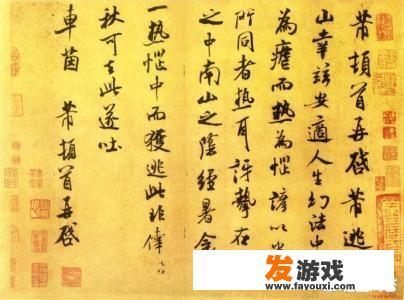 芾頓首再啓芾逃
山幸兹安適人生幻法中
為瘧而熱為惱諺以
所同者熱耳訝挚在
之中南山之陰經暑
一熱惱中而獲逃此非
秋可去此遂吐
車茵 芾頓首再啓
发游戏
www.fayouxi.com